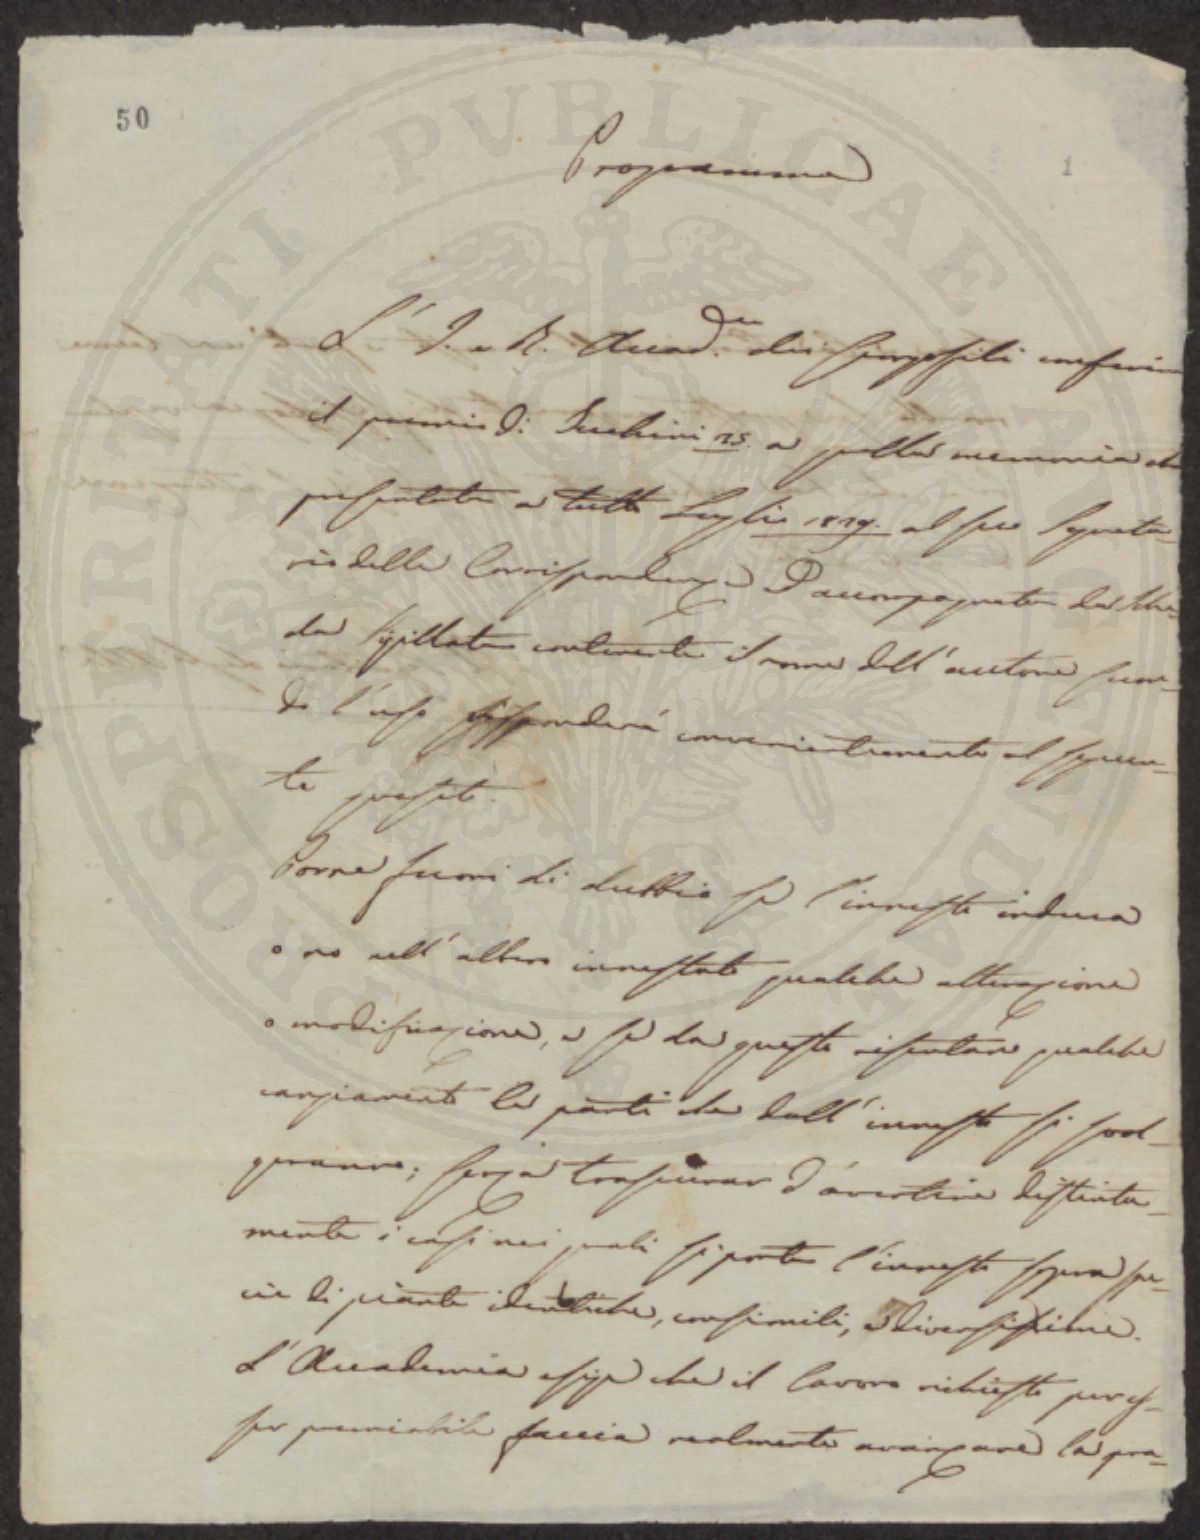 50
1
Programma
L' I. e R. Accad.a dei Georgofili conferirà
il premio di Zecchini 25. a quella memoria che
presentata a tutto Luglio 1819. al suo Segreta-
rio delle Corrispondenze, ed accompagnata da Sche-
da sigillata contenente il nome dell' autore secon-
do l'uso risponderà convenientemente al seguen-
te quesito.
Porre fuori di dubbio se l'innesto induca
o no nell' albero innestato qualche alterazione
o modificazione, e se da questo risentano qualche
cangiamento le parti che dall' innesto si svol-
geranno; senza trascurar d'avvertire distinta-
mente i casi nei quali si porta l'innesto sopra spe-
cie di piante identiche, consimili, e diversissime.
L'Accademia esige che il lavoro richiesto per es-
ser premiabile faccia realmente avanzare la pra-
PROSPERITATI PUBLICAE AUGENDAE